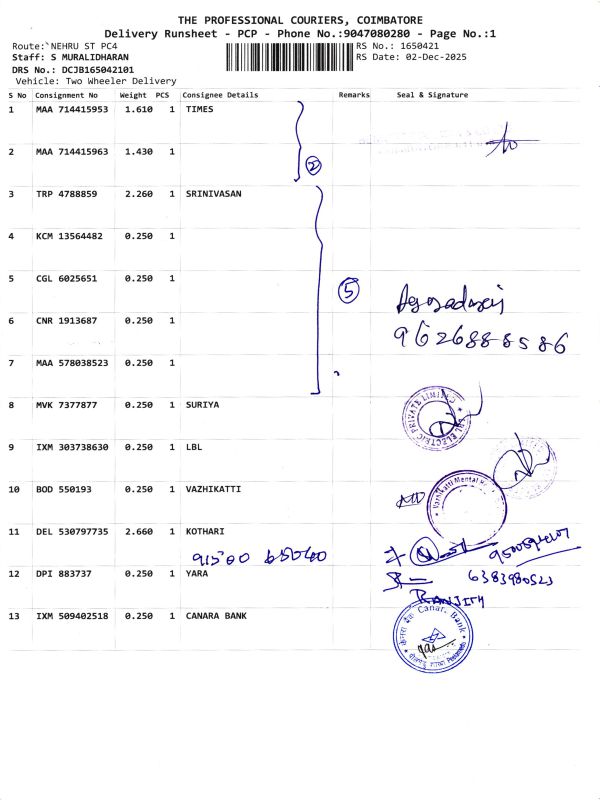 THE PROFESSIONAL COURIERS, COIMBATORE
Delivery Runsheet - PCP - Phone No.:9047080280 - Page No.:1
Route:`NEHRU ST PC4
RS No.: 1650421
Staff: S MURALIDHARAN
RS Date: 02-Dec-2025
DRS No.: DCJB165042101
Vehicle: Two Wheeler Delivery
S No Consignment No Weight PCS Consignee Details Remarks Seal & Signature
1 MAA 714415953 1.610 1 TIMES
2 MAA 714415963 1.430 1
2
3 TRP 4788859 2.260 1 SRINIVASAN
4 KCM 13564482 0.250 1
5 CGL 6025651 0.250 1
5
6 CNR 1913687 0.250 1
9626888586
7 MAA 578038523 0.250 1
8 MVK 7377877 0.250 1 SURIYA
ELECTRIC PRIVATE LIMITED
9 IXM 303738630 0.250 1 LBL
10 BOD 550193 0.250 1 VAZHIKATTI
Vazhikatti Mental
11 DEL 530797735 2.660 1 KOTHARI
12 DPI 883737 0.250 1 YARA
6383980523
RANJITH
13 IXM 509402518 0.250 1 CANARA BANK
केनरा बैंक Canara Bank